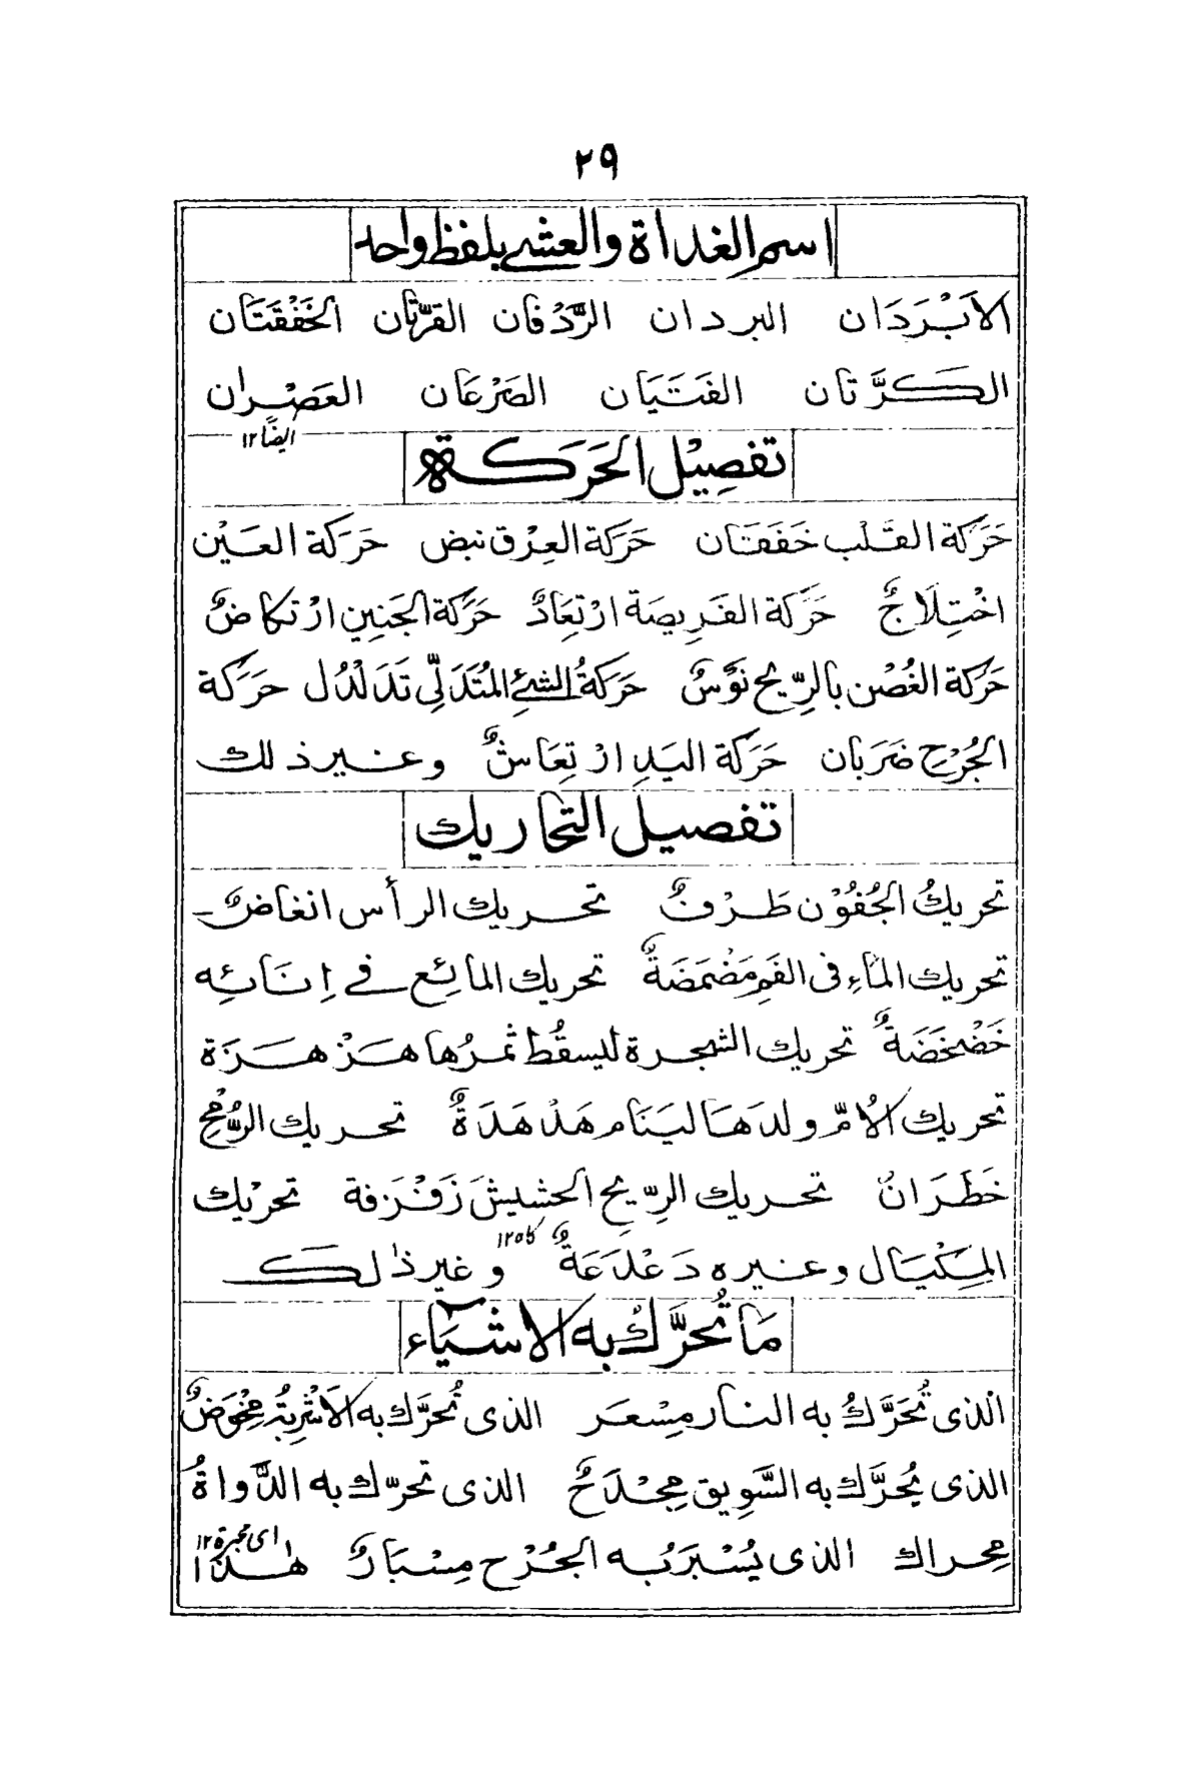 ٢٩
اسم الغداة والعشي بلفظ واحد
الاَبْرَدَان البردان الرَّدْفان القرَّتان الخَفْقَتَان
الكَرَّتان الفَتَيَان الصَرْعَان العَصْران
ايضًا١٢
تفصِيْل الحَرَكَة
حَرَكة القَلْب خَفَقَان حَرَكَة العِرْق نبض حَرَكة العَيْن
اخْتِلَاجٌ حَرَكة الفَرِيصَة ارْتِعَادٌ حَرَكة الجَنِين ارْتكاضٌ
حَرَكة الغُصْن بالرِّيح نَوْسٌ حَرَكَةُ الشئِ المُتَدَلِّي تَدَلْدُل حَرَكة
الجُرْح ضَرَبان حَرَكة اليَدِ ارْتِعَاشٌ وغير ذلك
تفصيل التحاريك
تحريكُ الجُفُوْن طَرْفٌ تحريك الرأس انغاضٌ
تحريك المَاءِ فى الفَمِ مَضْمَضَةٌ تحريك المائِع في اِنَائِه
خَضْخَضَةٌ تحريك الشجرة ليسقُط ثمرُها هَزْهَزَة
تحريك الاُمّ ولدَهَا ليَنَام هَدْهَدَةٌ تحريك الرُّمْحِ
خَطَرَانٌ تحريك الرِّيحِ الحشيشَ زَفْزَفة تحرْيك
كاه١٢
المِكْيَال وغيره دَعْدَعَةٌ وغير ذٰلك
مَا تُحرَّكُ به الاشيَاء
الذى تُحَرَّكُ به النار مِسْعَر الذى تُحرَّك به الاَشْرِبَةُ مِخْوَضٌ
الذى يُحرَّك به السَّوِيق مِجْدَحٌ الذى تحرّك به الدَّواةُ
اى محبرة١٢
مِحراك الذى يُسْبَرُ به الجُرْح مِسْبَارٌ هٰذا